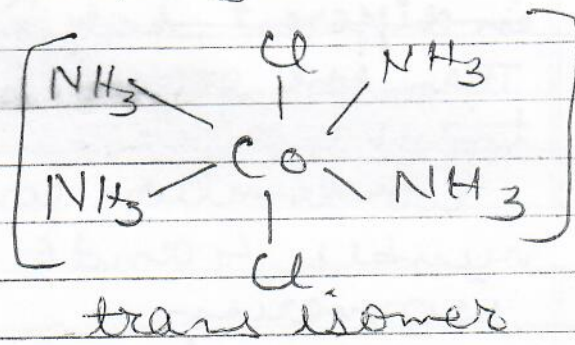 Cl
NH3 NH3
Co
NH3 NH3
Cl
trans isomer